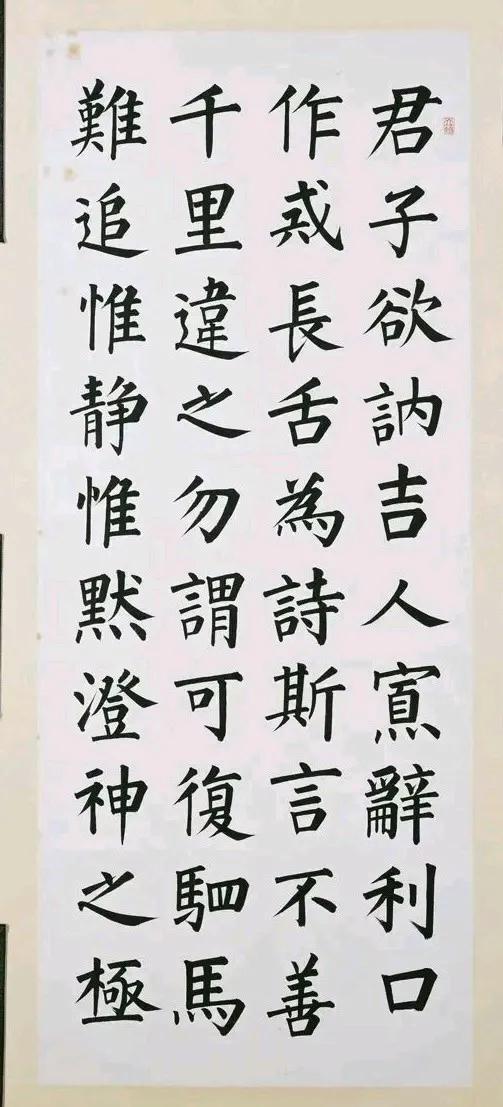 君子欲訥吉人寡辭利口
作戒長舌為詩斯言不善
千里違之勿謂可復駟馬
難追惟静惟默澄神之極